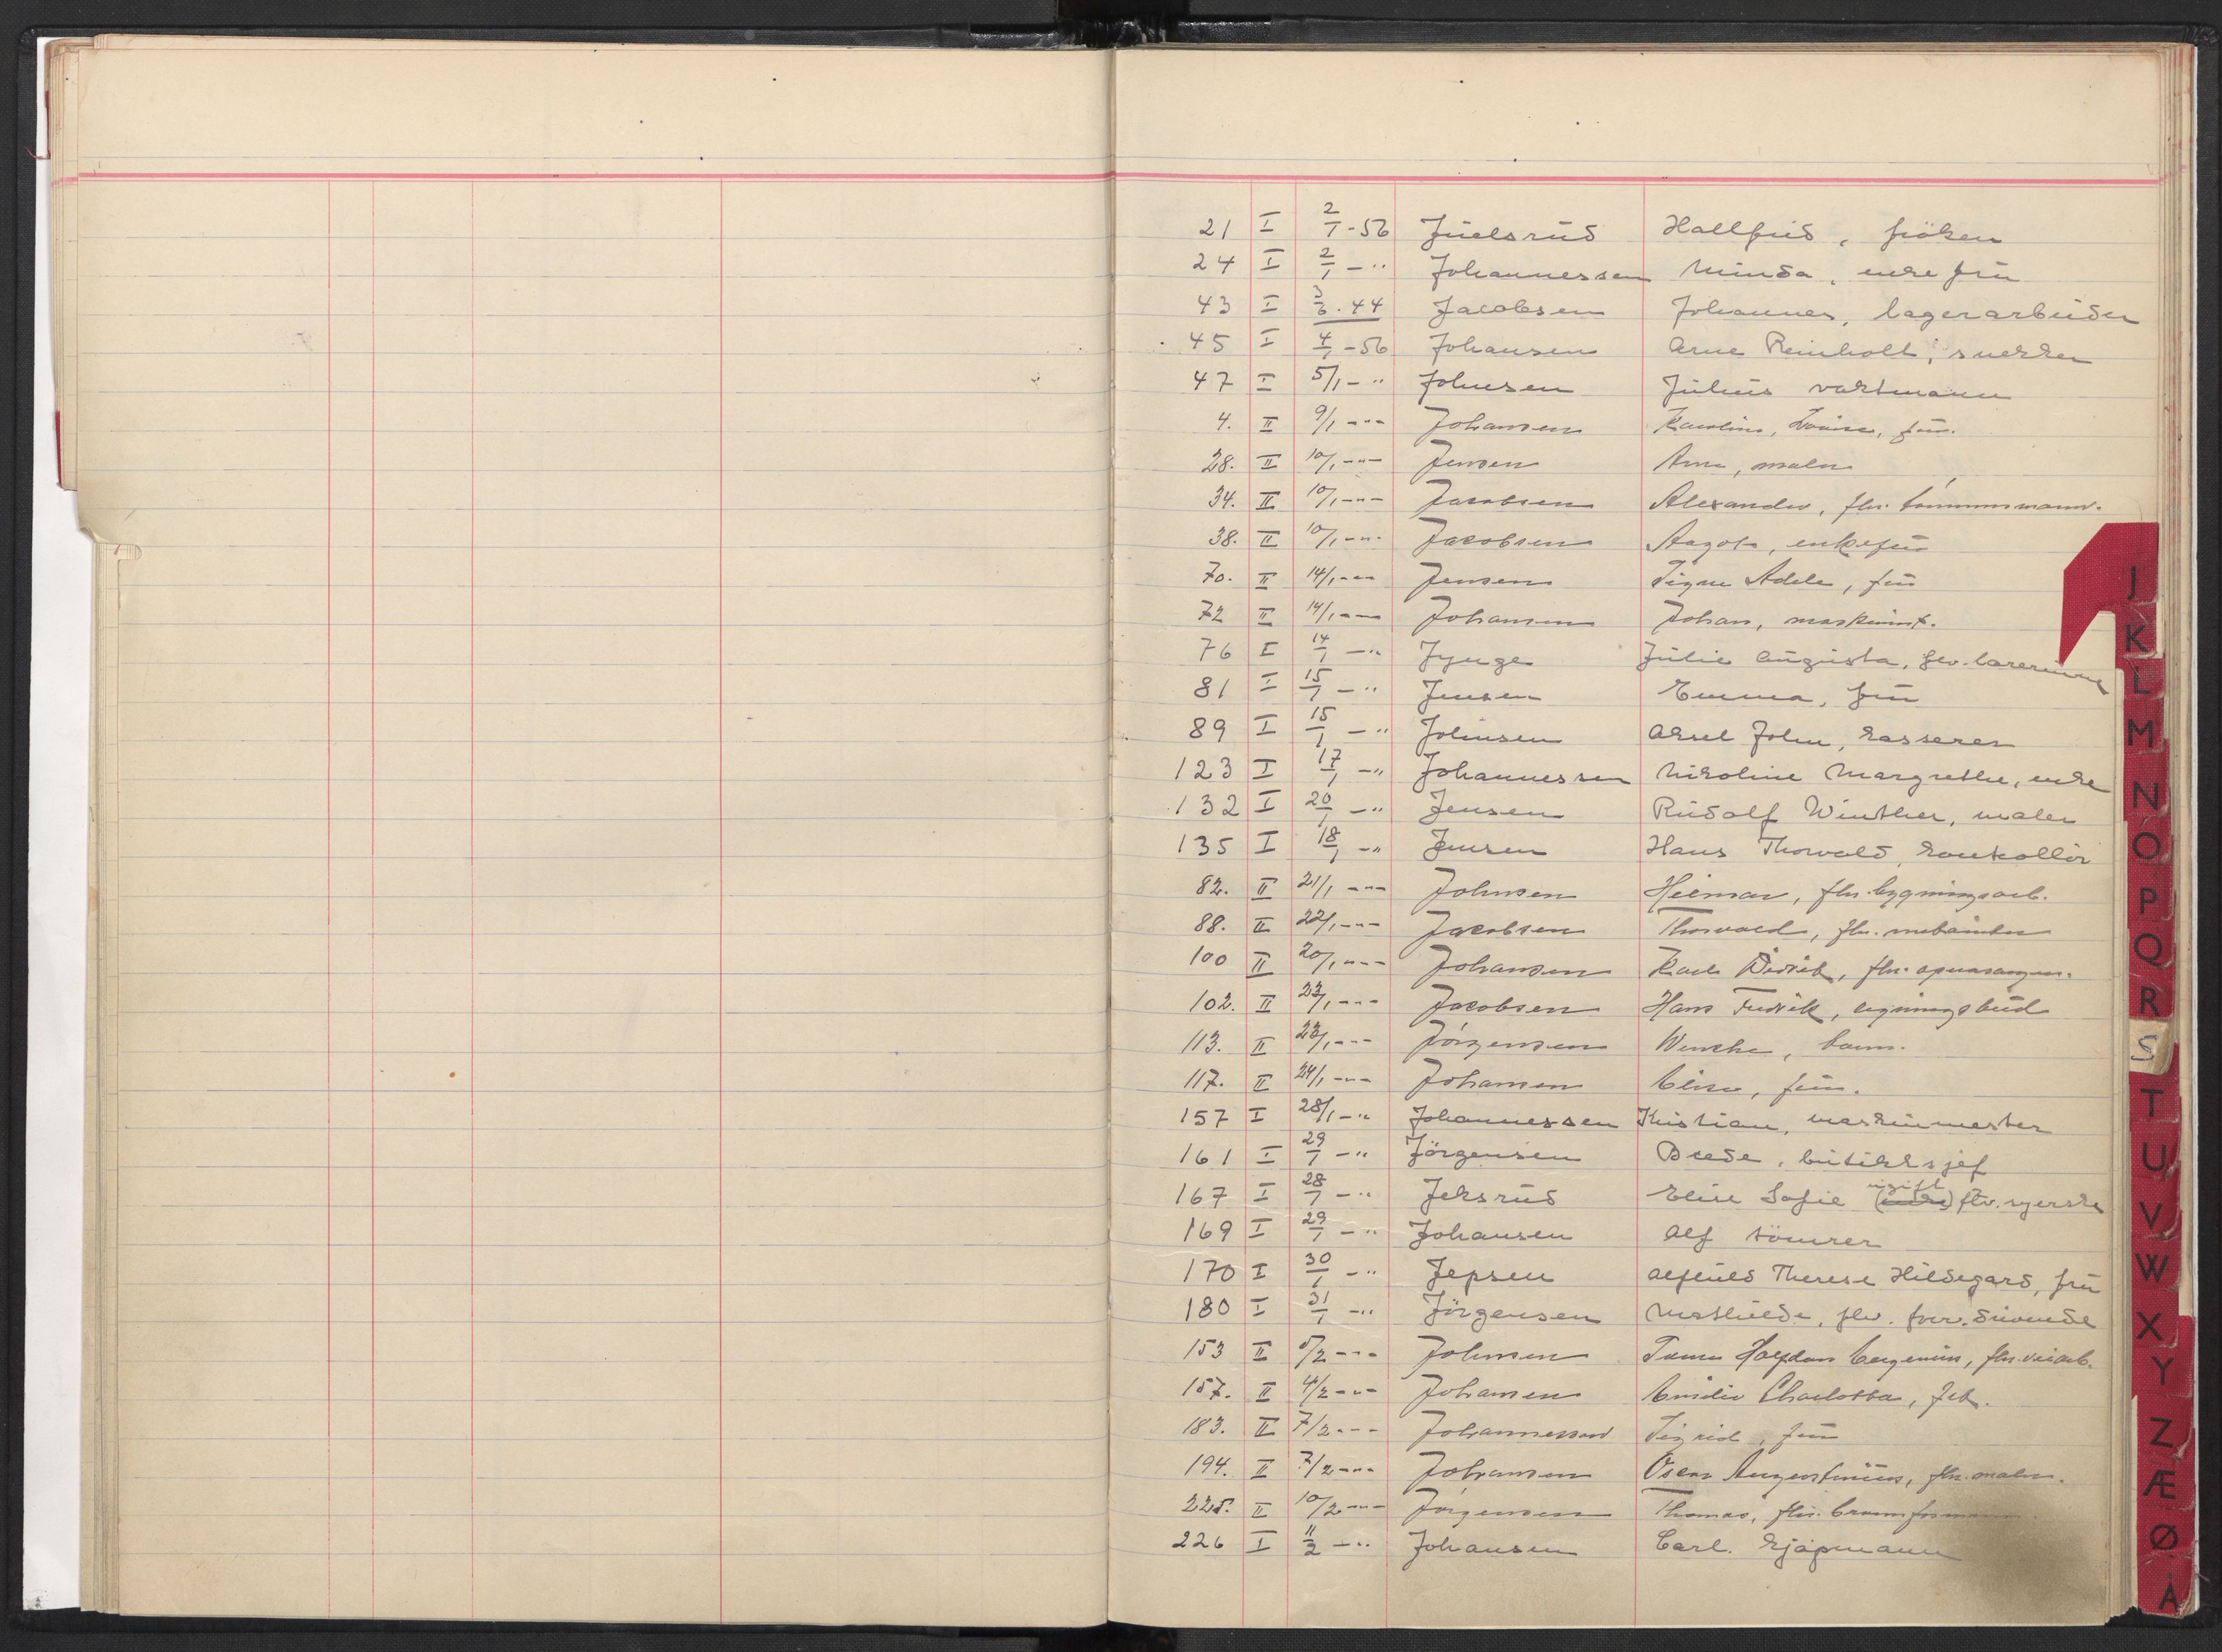 21 I 2/1-56 Juelsrud Hallfrid, fröken
24 I 2/1 -" Johannessen Minda, enkefru
43 I 3/6.44 Jacobsen Johannes, lagerarbeider
45 I 4/1-56 Johansen Arne Reinholt, snekker
47 I 5/1-" Johnsen Julius vaktmann
4. II 9/1 -"- Johansen Karoline, Lovise, fru.
28. II 10/1 -"- Jensen Arne, maler
34. II 10/1 -"- Jacobsen Alexander, fhv. tömmermann.
38. II 10/1 -"- Jacobsen Aagot, enkefru
70. II 14/1 -"- Jensen Signe Adele, fru
72 II 14/1 -"- Johansen Johan, maskinist.
76 I 14/1 -" Jynge Julie Augusta, fhv. lærerinne
81 I 15/1 -" Jensen Emma, fru
89 I 15/1 -" Johnsen Aksel John, kasserer
123 I 17/1 -" Johannessen Nikoline Margrethe, enke
132 I 20/1 -" Jensen Rudolf Winther, maler
135 I 18/1 -" Jensen Hans Thorvald, kontrollör
82. II 21/1 -"- Johnsen Hilmar, fhv. bygningsarb.
88. II 22/1 -"- Jacobsen Thorvald, fhv.
100 II 20/1 -"- Johansen Karl Didrik, fhv. operasanger.
102. II 23/1 -"- Jacobsen Hans Fredrik, ligningsbud
113. II 23/1 -"- Jörgensen Wenche, barn.
117. II 24/1 -"- Johansen Elise, fru.
157 I 28/1 -" Johannessen Kristian, maskinmester
161 I 29/1 -" Jörgensen Brede, butikksjef
167 I 28/1 -" Jeksrud Elise Sofie (enke) ugift fhv. syerske
169 I 29/1 -" Johansen Alf tömrer
170 I 30/1 -" Jepsen Alfhild Therese Hildegard, fru
180 I 31/1 -" Jörgensen Mathilde, fhv. forr. drivende
153 II 5/2 -"- Johnsen Halfdan fhv. veiarb.
157. II 4/2 -"- Johansen Emilie Charlotta, frk.
183. II 7/2 -"- Johannessen Sigrid, fru
194. II 7/2 -"- Johansen Oscar Augustinius, fhv. maler.
225. II 10/2 -"- Jörgensen Thomas, fhv. brannformann
226 I 11/2 -" Johansen Carl. kjöpmann
J
K
L
M
N
O
P
Q
R
S
T
U
V
W
X
Y
Z
Æ
Ø
Å